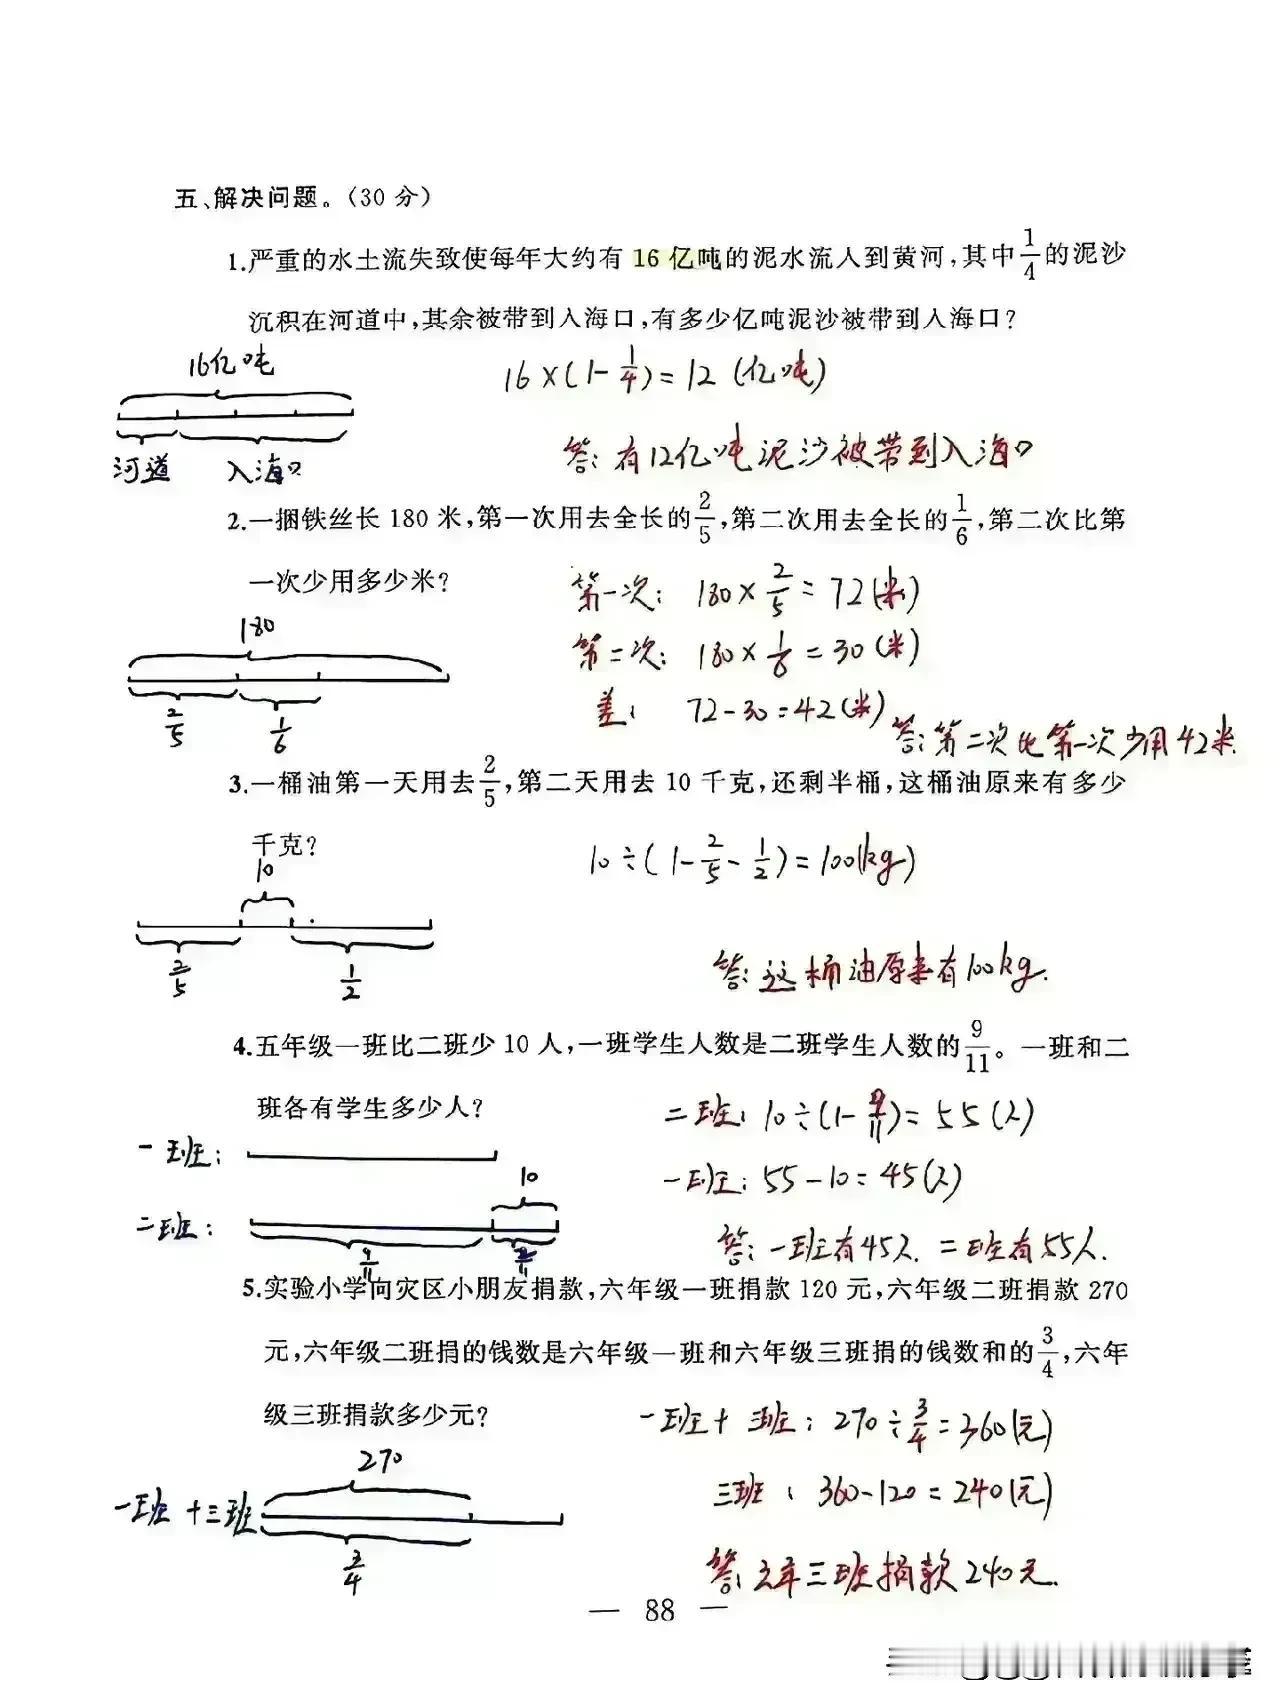 五、解决问题。(30 分)
1.严重的水土流失致使每年大约有 16 亿吨的泥水流入到黄河,其中 1/4 的泥沙
沉积在河道中,其余被带到入海口,有多少亿吨泥沙被带到入海口?
16亿吨
河道 入海口
16×(1-1/4)=12 (亿吨)
答:有12亿吨泥沙被带到入海口
2.一捆铁丝长 180 米,第一次用去全长的 2/5,第二次用去全长的 1/6,第二次比第
一次少用多少米?
180
2/5 1/6
第一次: 180×2/5=72(米)
第二次: 180×1/6=30(米)
差: 72-30=42(米)
答:第二次比第一次少用42米.
3.一桶油第一天用去 2/5,第二天用去 10 千克,还剩半桶,这桶油原来有多少
千克?
10
2/5 1/2
10÷(1-2/5-1/2)=100(kg)
答:这桶油原来有100kg.
4.五年级一班比二班少 10 人,一班学生人数是二班学生人数的 9/11。一班和二
班各有学生多少人?
一班:
10
二班:
9/11 2/11
二班: 10÷(1-9/11)=55(人)
一班: 55-10=45(人)
答:一班有45人.二班有55人.
5.实验小学向灾区小朋友捐款,六年级一班捐款 120 元,六年级二班捐款 270
元,六年级二班捐的钱数是六年级一班和六年级三班捐的钱数和的 3/4,六年
级三班捐款多少元?
270
一班+三班
3/4
一班+三班: 270÷3/4=360(元)
三班: 360-120=240(元)
答:六年三班捐款240元.
— 88 —